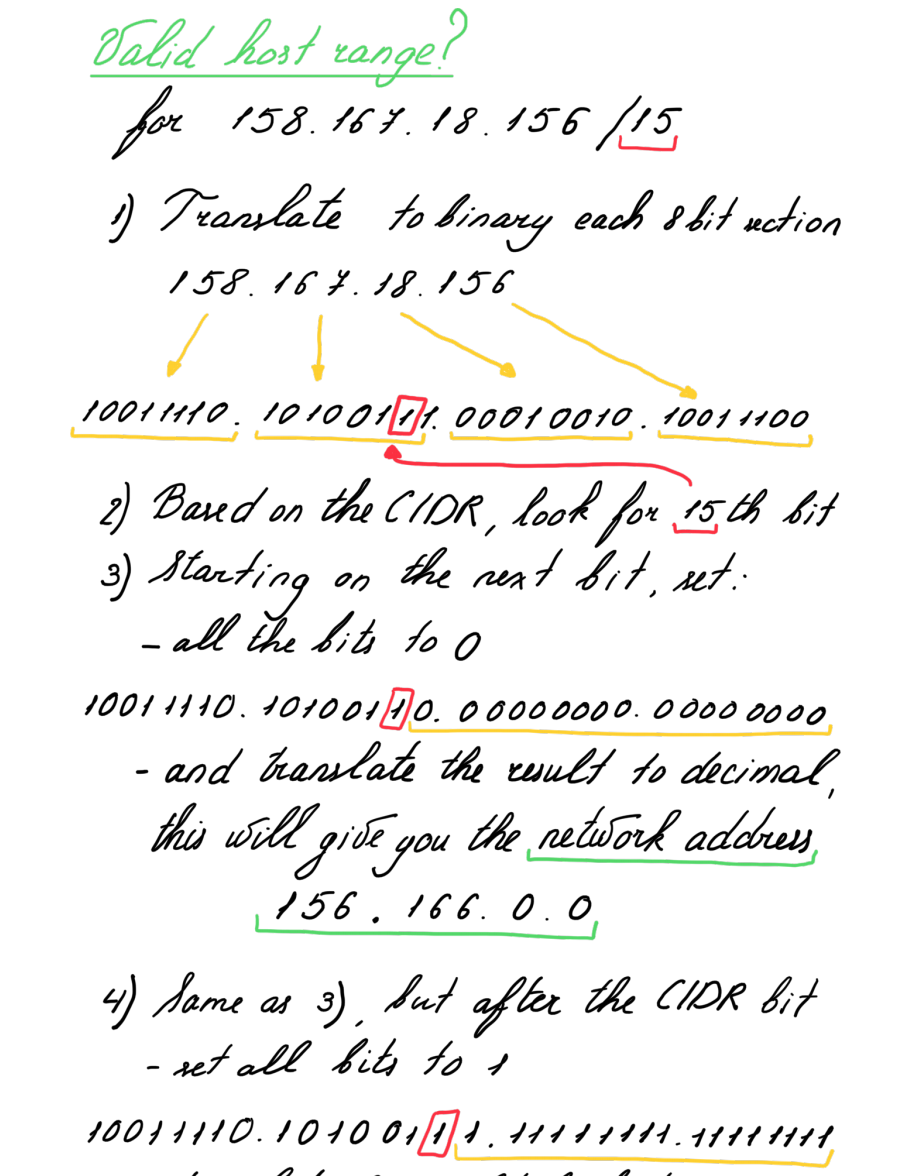 Valid host range?
for 158.167.18.156 /15
1) Translate to binary each 8bit section
158.167.18.156
10011110.10100111.00010010.10011100
2) Based on the CIDR, look for 15th bit
3) Starting on the next bit, set:
- all the bits to 0
10011110.10100110.00000000.00000000
- and translate the result to decimal,
this will give you the network address
156.166.0.0
4) Same as 3), but after the CIDR bit
- set all bits to 1
10011110.10100111.11111111.11111111